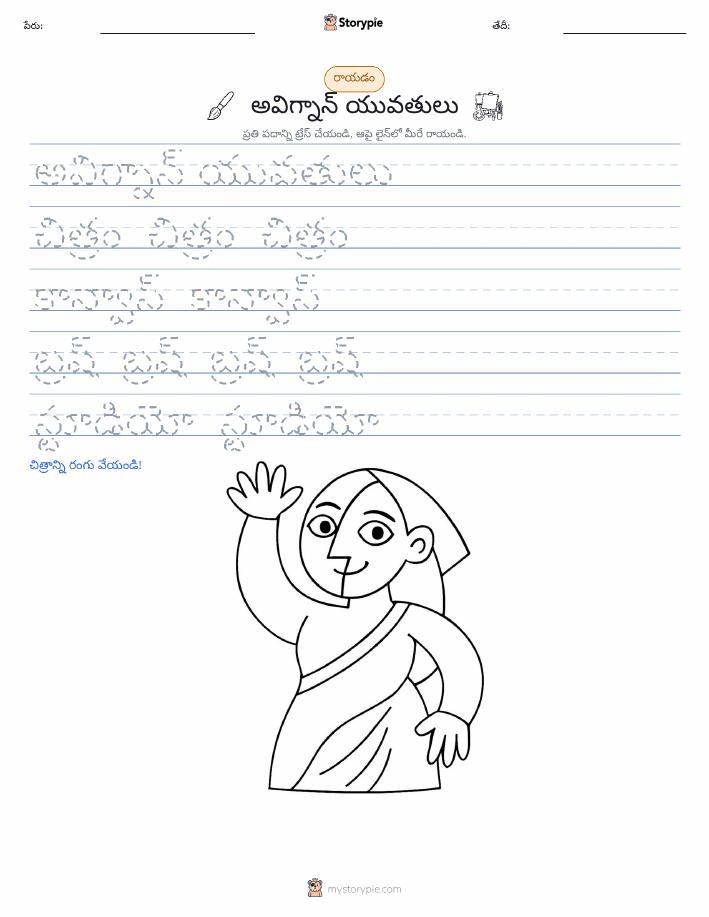 పేరు:
Storypie
తేదీ:
రాయడం
అవిగ్నాన్ యువతులు
ప్రతి పదాన్ని ట్రేస్ చేయండి, ఆపై లైన్‌లో మీరే రాయండి.
అవిగ్నాన్ యువతులు
చిత్రం చిత్రం చిత్రం
కాన్వాస్ కాన్వాస్
బ్రష్ బ్రష్ బ్రష్ బ్రష్
స్టూడియో స్టూడియో
చిత్రాన్ని రంగు వేయండి!
mystorypie.com